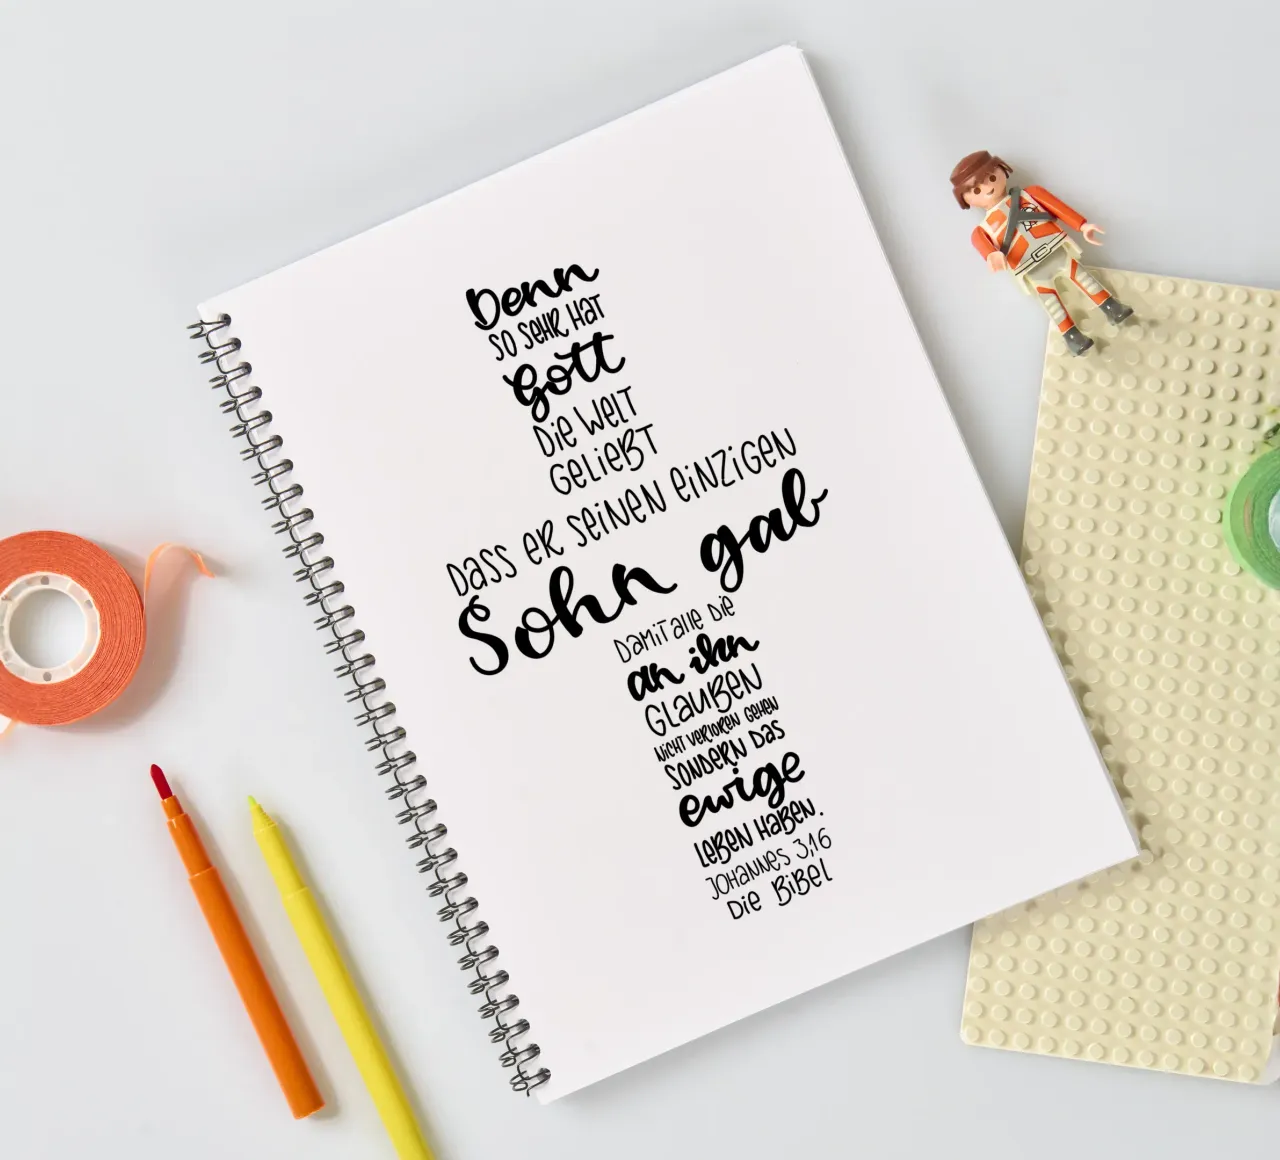 Denn
so sehr hat
Gott
die Welt
geliebt
dass er seinen einzigen
Sohn gab
damit alle die
an ihn
glauben
nicht verloren gehen
sondern das
ewige
leben haben.
Johannes 3,16
die Bibel